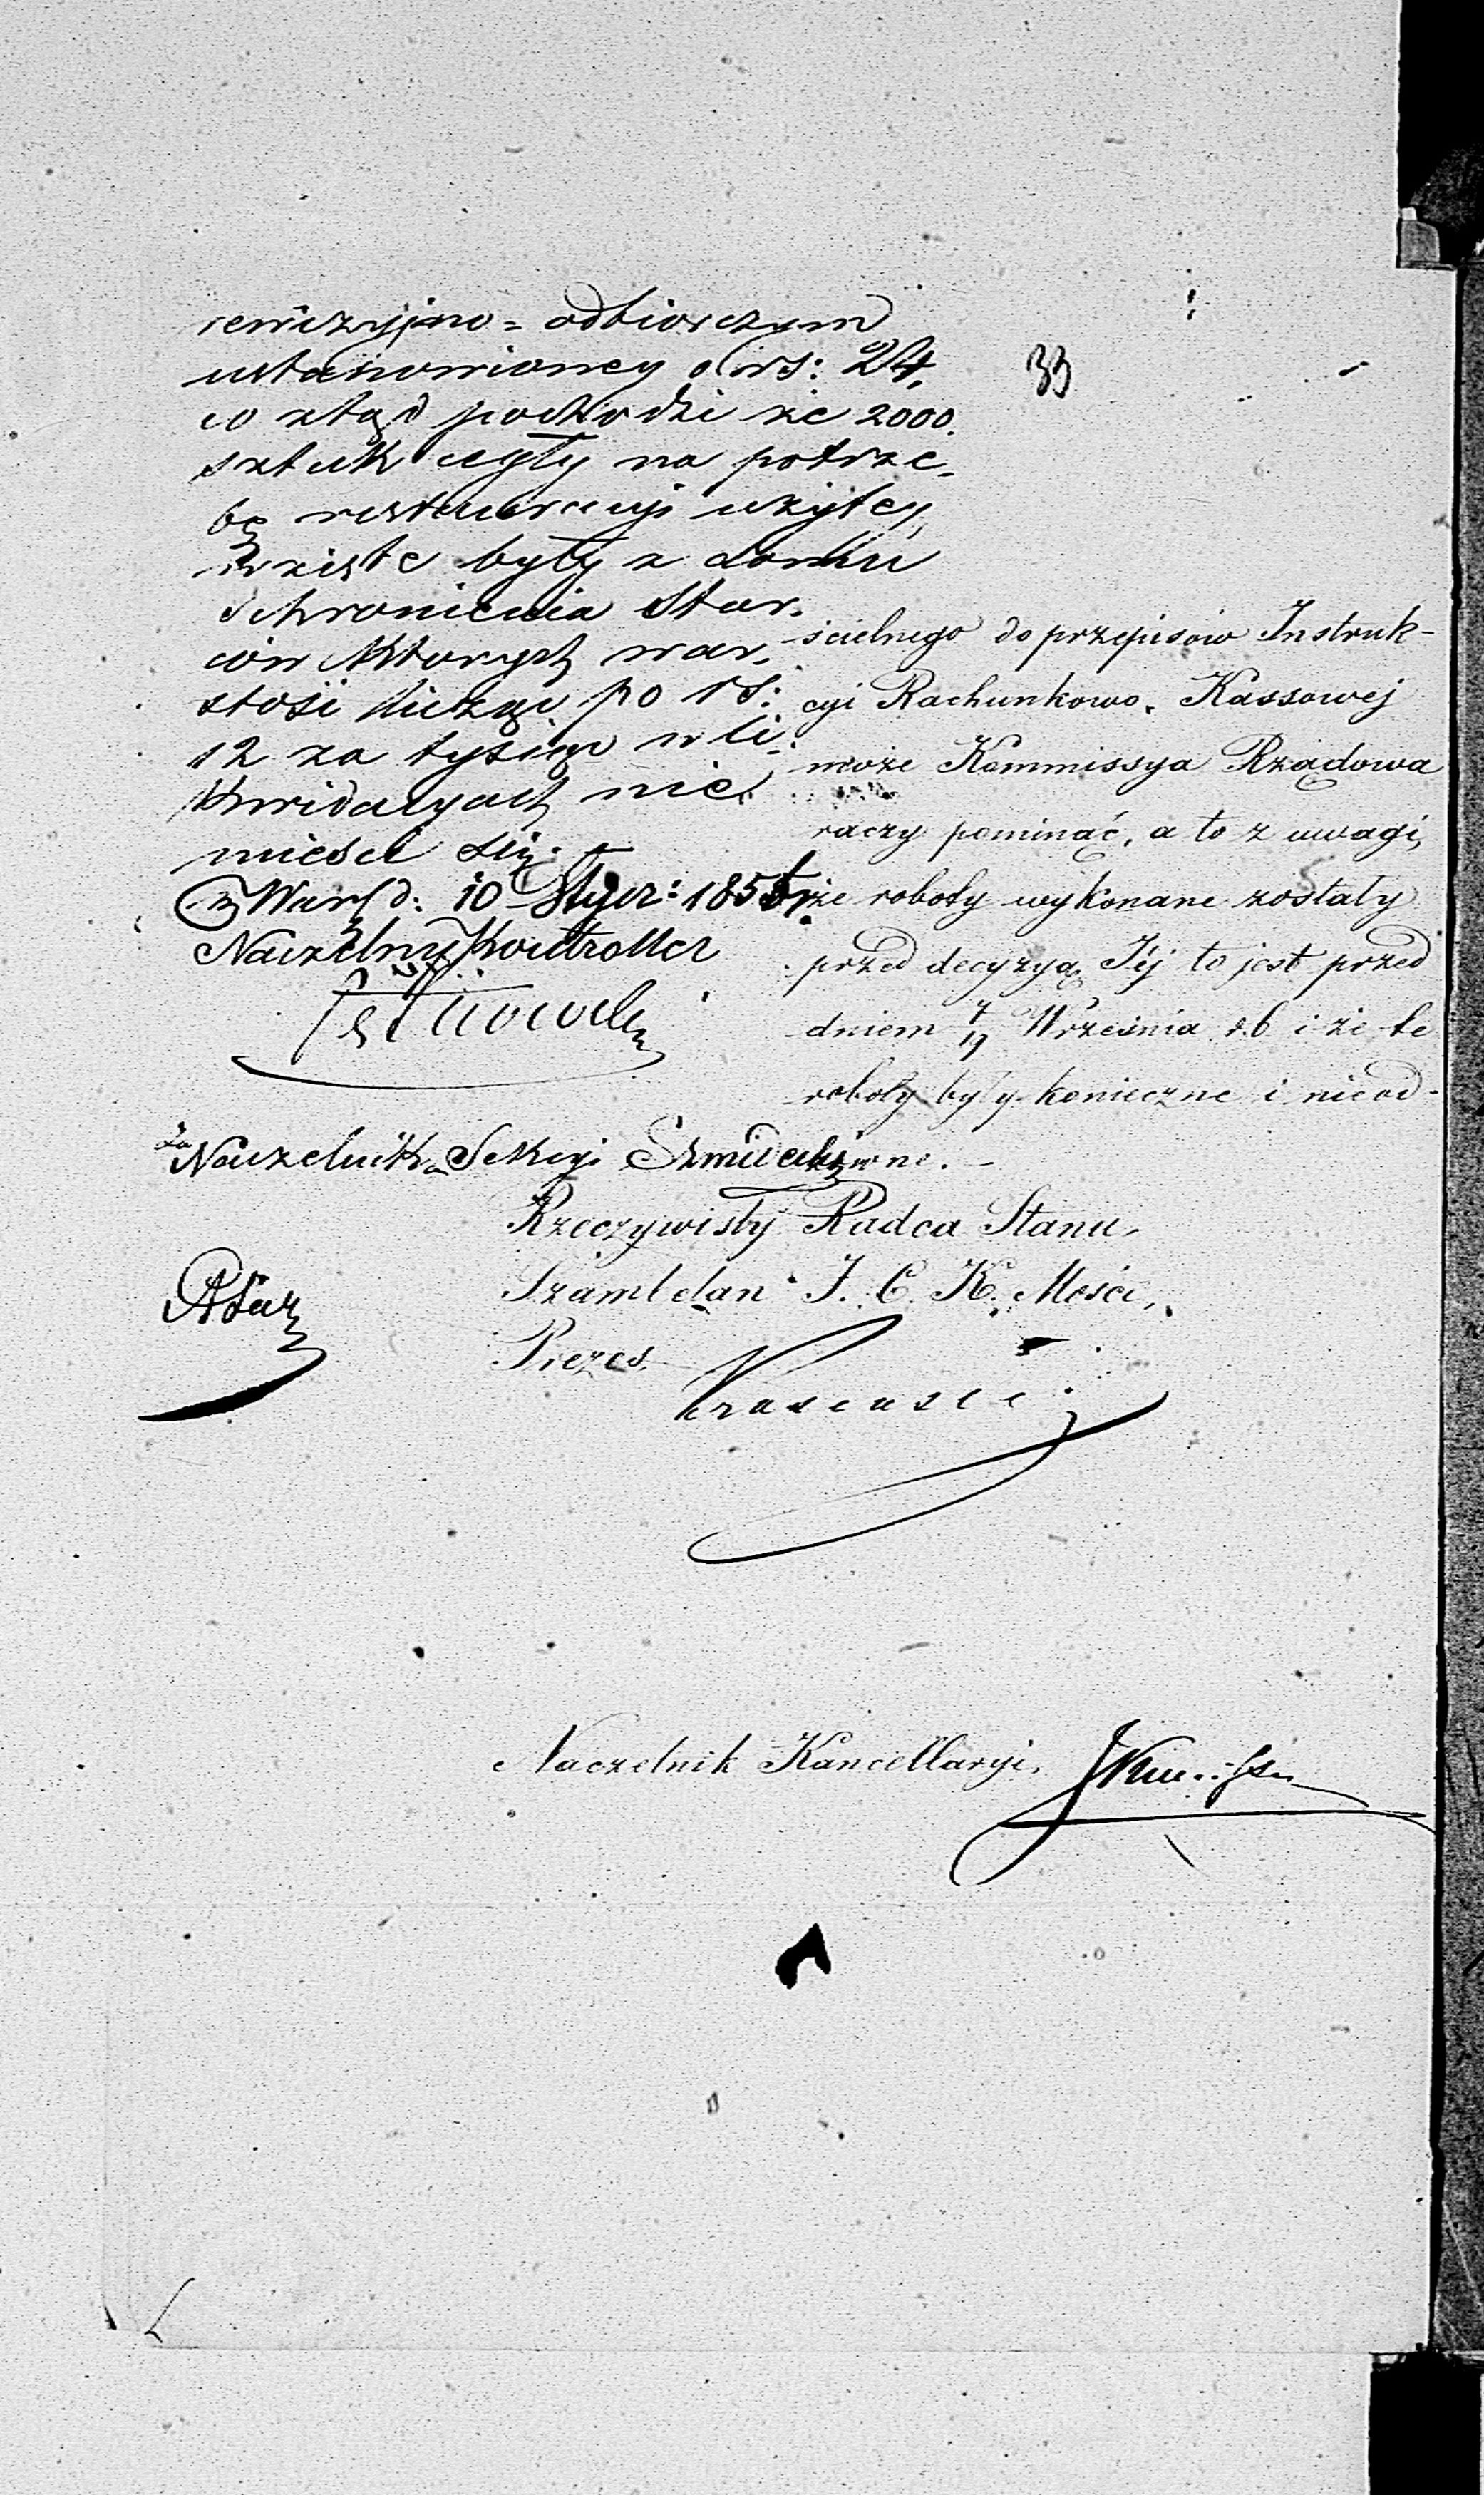 33
rewizyjno = odbiorczym
ustanowioney o rs: 24,
co ztąd pochodzi że 2000.
sztuk cegły na potrze,
bę restauracyi użytey,
wzięte były z domku
schronienia Star,
ców których war,
stość licząc po rs:
12 za tysiąc w li,
kwidacyach nie
mieści się.
Wars d: 10 Stycz: 185
Naczelny Kontroller
ścielnego do przepisów Instruk-
cyi Rachunkowo, Kassowej
może Kommissya Rządowa
raczy pominąć, a to z uwagi,
że roboty wykonane zostały
przed decyzyą Jéj to jest przed
dniem 7/19 Września r.b i że te
roboty były konieczne i nieod-
zowne.
Za Naczelnika Sekcyi
Rzeczywisty Radca Stanu,
Szambelan J. C. K. Mości,
Prezes
Krasiński
Naczelnik Kancellaryi,